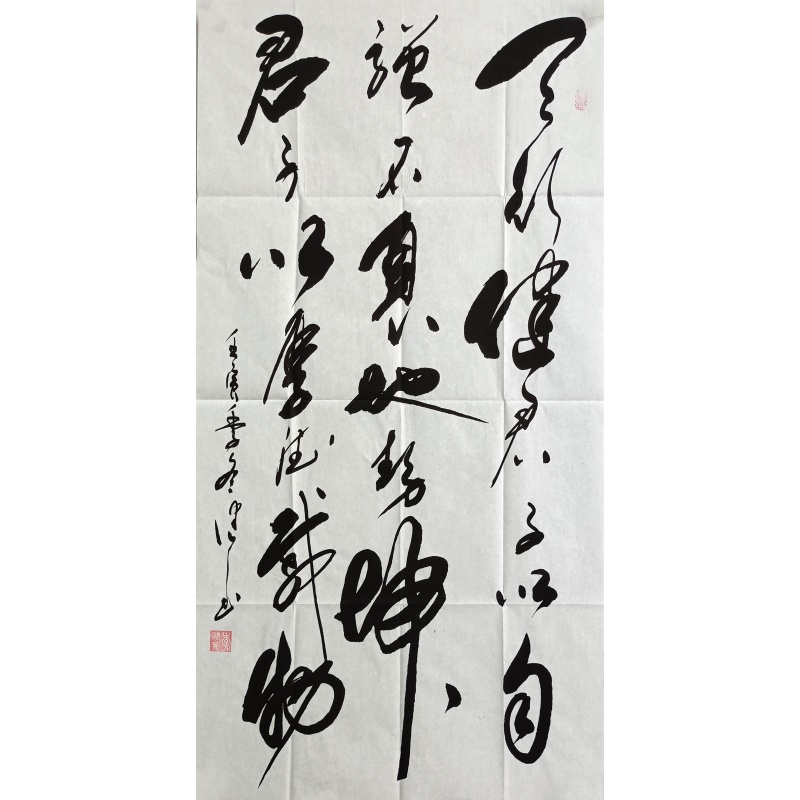 天行健君子以自
強不息地勢坤
君子以厚德載物
壬寅季冬